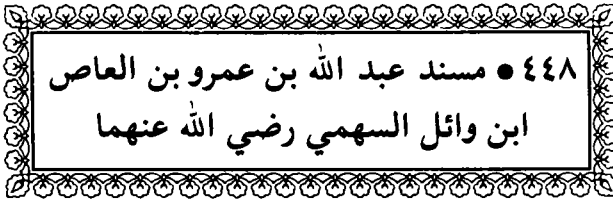 ٤٤٨ ● مسند عبد الله بن عمرو بن العاص
ابن وائل السهمي رضي الله عنهما